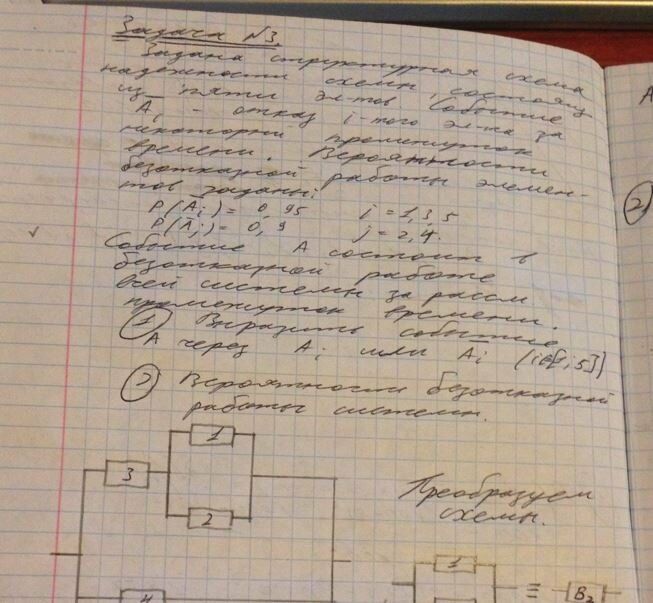 Задача №3.
Задана структурная схема
надежности схемы, состоящ
из пяти эл-тов Событие
Ai - отказ i того эл-та за
некоторый промежуток
времени. Вероятности
безотказной работы элемен-
тов заданы:
P(Āi) = 0,95 i = 1,3,5
P(Āj) = 0,9 j = 2,4.
Событие A состоит в
безотказной работе
всей системы за рассм
промежуток времени.
① Выразить событие
A через Ai или Āi (i∈[1;5])
② Вероятности безотказной
работы системы.
1
3
2
4
Преобразуем
схемы.
1
≡
B2
A
②